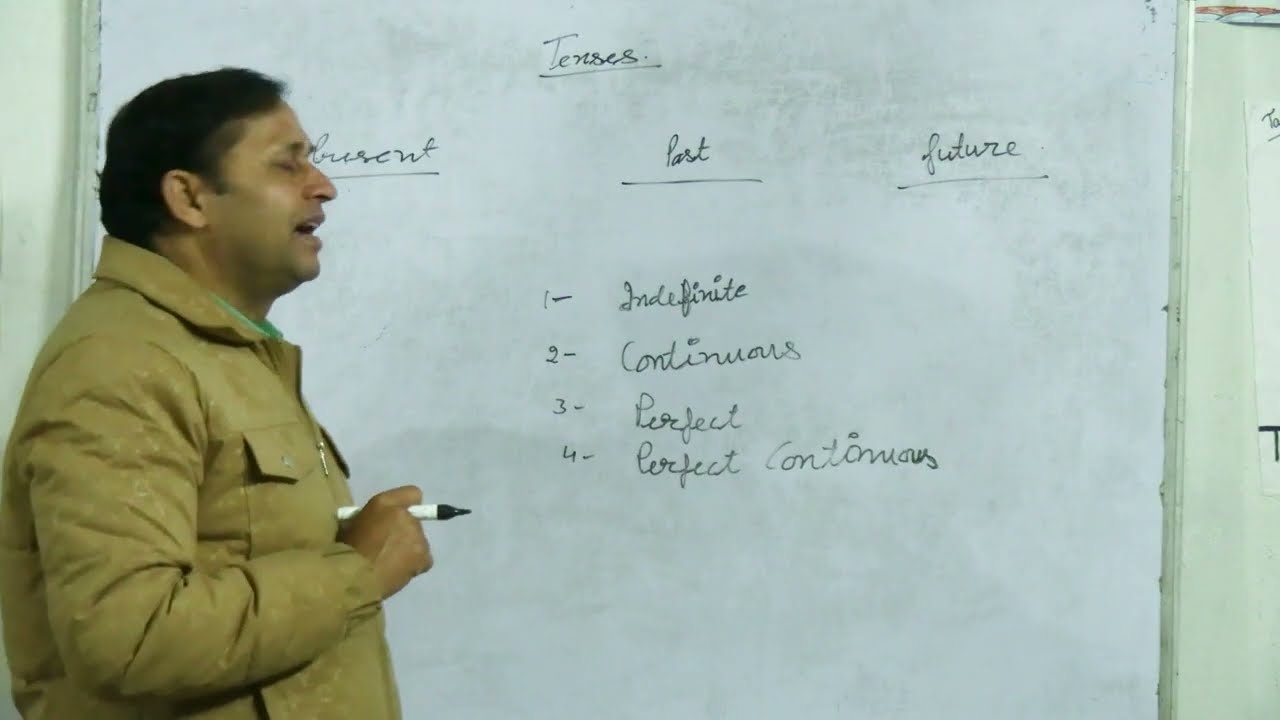 Tenses.
Present Past future.
1- Indefinite
2- Continuous
3- Perfect
4- Perfect Continuous
Ta
T